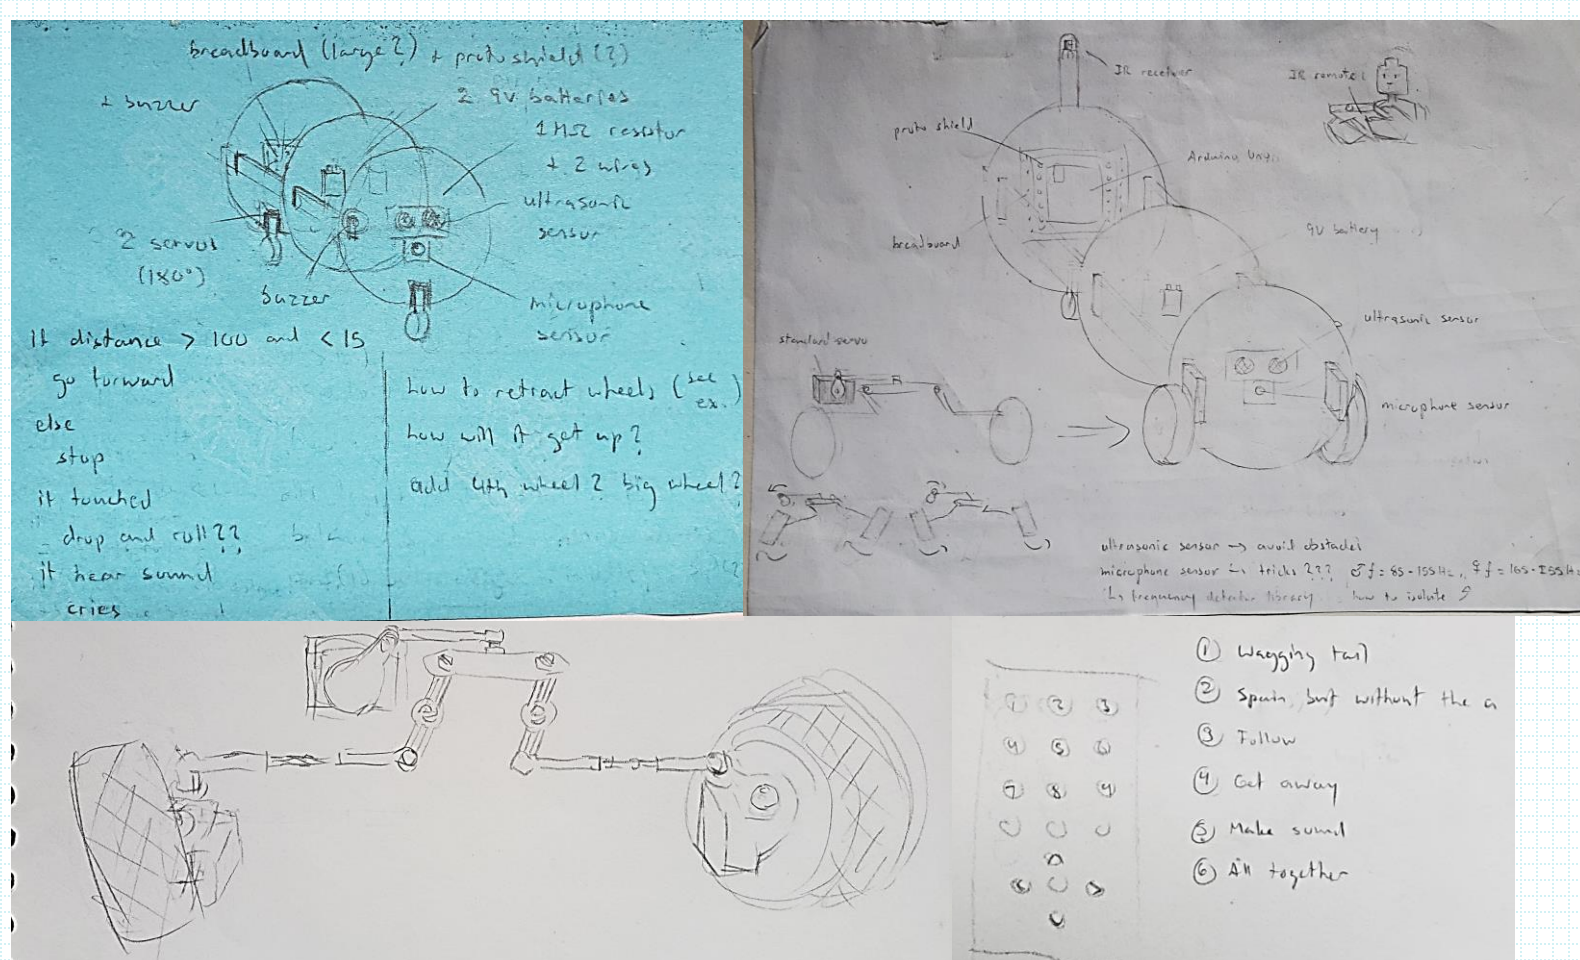 breadboard (large?) + proto shield (?)
+ buzzer
2 9V batteries
1MΩ resistor
+ 2 wires
ultrasonic
sensor
2 servos
(180°)
buzzer
microphone
sensor
If distance > 100 and < 15
go forward
else
stop
if touched
drop and roll??
if hear sound
cries
how to retract wheels (see
ex.)
how will it get up?
add 4th wheel? big wheel?
IR receiver
IR remote
proto shield
Arduino Uno
breadboard
9V battery
ultrasonic sensor
standard servo
microphone sensor
ultrasonic sensor → avoid obstacles
microphone sensor ↳ tricks??? ♂ f = 85-155Hz, ♀ f = 165-255Hz
↳ frequency detector library how to isolate ?
1 2 3
4 5 6
7 8 9
① Wagging tail
② Spain, but without the a
③ Follow
④ Get away
⑤ Make sound
⑥ All together